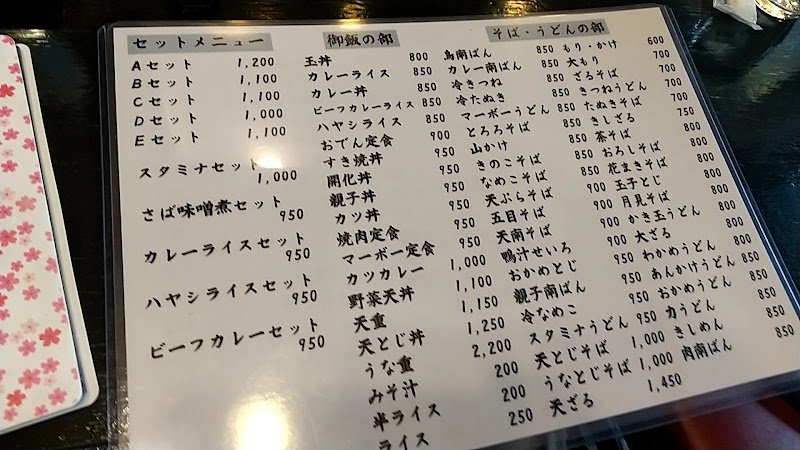 セットメニュー
Aセット 1,200
Bセット 1,100
Cセット 1,100
Dセット 1,000
Eセット 1,100
スタミナセット 1,000
さば味噌煮セット 950
カレーライスセット 950
ハヤシライスセット 950
ビーフカレーセット 950
御飯の部
玉丼 800
カレーライス 850
カレー丼 850
ビーフカレーライス 850
ハヤシライス 850
おでん定食 900
すき焼丼
開化丼
親子丼 950
カツ丼 950
焼肉定食 950
マーボー定食 950
カツカレー 1,000
野菜天丼 1,100
天重 1,150
天とじ丼 1,250
うな重 2,200
みそ汁 200
半ライス 200
ライス 250
そば・うどんの部
鳥南ばん 850
カレー南ばん 850
冷きつね 850
冷たぬき 850
マーボーうどん 850
とろろそば 850
山かけ 850
きのこそば 850
なめこそば 850
天ぷらそば 900
五目そば 900
天南そば 900
鴨汁せいろ 950
おかめとじ 950
親子南ばん 950
冷なめこ 950
スタミナうどん 950
天とじそば 1,000
うなとじそば 1,000
天ざる 1,450
もり・かけ 600
大もり 700
ざるそば 700
きつねうどん 700
たぬきそば 700
きしざる 750
茶そば 800
おろしそば 800
花まきそば 800
玉子とじ 800
月見そば 800
かき玉うどん 800
大ざる 800
わかめうどん 850
あんかけうどん 850
おかめうどん 850
力うどん 850
きしめん 850
肉南ばん 850